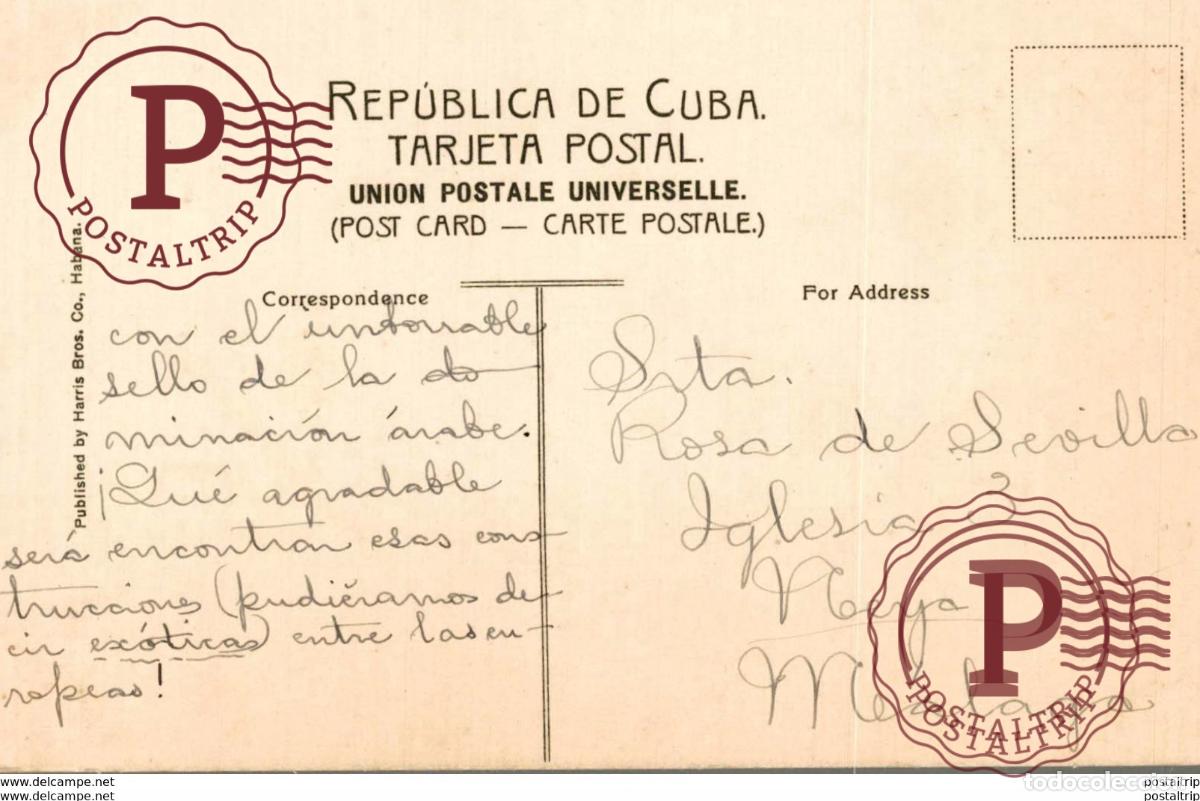 REPÚBLICA DE CUBA.
TARJETA POSTAL.
UNION POSTALE UNIVERSELLE.
(POST CARD — CARTE POSTALE.)
P
POSTALTRIP
Published by Harris Bros. Co., Habana.
Correspondence
con el imborrable
sello de la do-
minación árabe.
¡Qué agradable
será encontrar esas cons-
trucciones (pudiéramos de-
cir exóticas) entre las eu-
ropeas!
For Address
Srta.
Rosa de Sevilla
Iglesia 2
P
POSTALTRIP
POSTALTRIP
todocoleccion
www.delcampe.net
postaltrip
www.delcampe.net
postaltrip